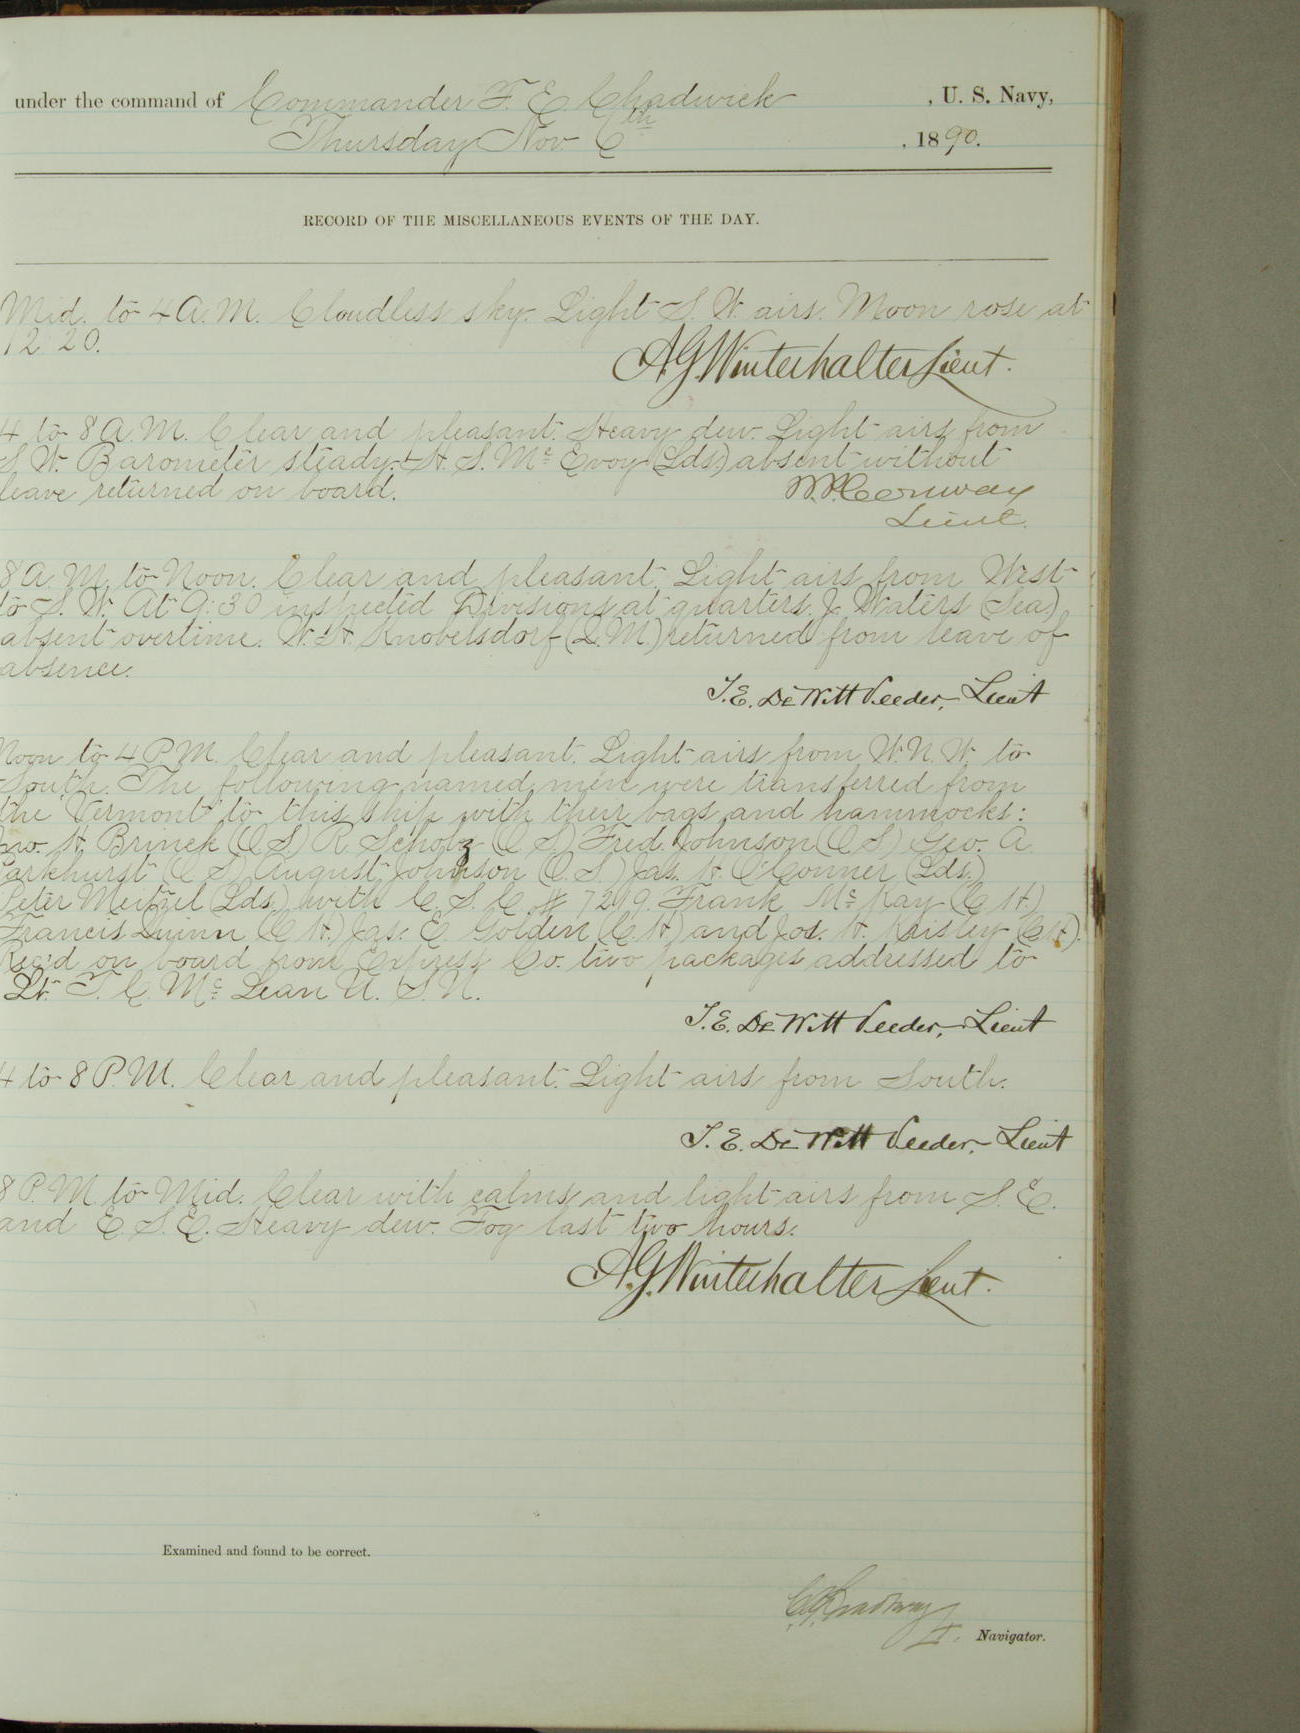 under the command of Commander F. E. Chadwick , U. S. Navy,
Thursday Nov. 6th , 1890.
RECORD OF THE MISCELLANEOUS EVENTS OF THE DAY.
Mid. to 4 A.M. Cloudless sky. Light S. W. airs. Moon rose at
12 20.
A.G. Winterhalter Lieut.
4 to 8 A.M. Clear and pleasant. Heavy dew. Light airs from
S. W. Barometer steady. H. S. Mc Evoy (Lds.) absent without
leave returned on board.
W.P. Conway
Lieut.
8 A. M. to Noon. Clear and pleasant. Light airs from West
to S. W. At 9:30 inspected Divisions at quarters. J. Waters (Sea)
absent overtime. W. H. Knobelsdorf (Q.M.) returned from leave of
absence.
T.E. DeWitt Veeder, Lieut
Noon to 4 P.M. Clear and pleasant. Light airs from W. N. W. to
South. The following named men were transferred from
the "Vermont" to this ship with their bags and hammocks:
Jno. H. Brinck (O S) R. Scholz (O S.) Fred. Johnson (O S) Geo. A.
Parkhurst (O S) August Johnson (O. S.) Jas. H. O'Conner (Lds.)
Peter Meitzel (Lds.) with C. S. C. # 7219. Frank Mc Kay (C H.)
Francis Quinn (C H.) Jas. E Golden (C. H.) and Jos. H. Knisley (C H).
Rec'd on board from Express Co. two packages addressed to
Lt. T. C. Mc Lean U. S. N.
T.E. DeWitt Veeder, Lieut
4 to 8 P.M. Clear and pleasant. Light airs from South.
T. E. DeWitt Veeder, Lieut
8 P.M to Mid. Clear with calms and light airs from S. E.
and E. S. E. Heavy dew. Fog last two hours.
A.G. Winterhalter Lieut.
Examined and found to be correct.
Lt. Navigator.